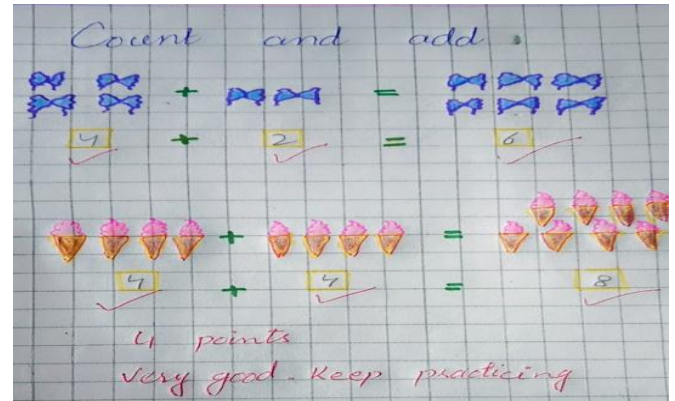 Count and add.
+ =
4 + 2 = 6
+ =
4 + 4 = 8
4 points
Very good. Keep practicing